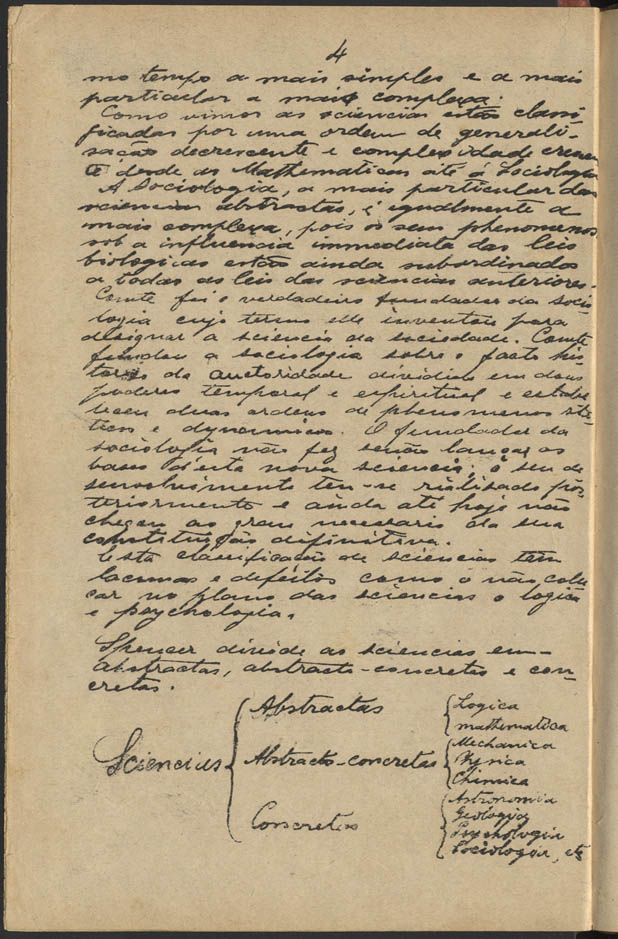 4
mo tempo a mais simples e a mais
particular a mais complexa.
Como vimos as sciencias estão classi-
ficadas por uma ordem de generali-
sação decrescente e complexidade crescen
te desde as Mathematicas até á Sociologia
A Sociologia, a mais particular das
sciencias abstractas, é igualmente a
mais complexa, pois os seus phenomenos
sob a influencia immediata das leis
biologicas estão ainda subordinados
a todas as leis das sciencias anteriores.
Comte foi o verdadeiro fundador da socio
logia cujo termo elle inventou para
designar a sciencia da sociedade. Comte
fundou a sociologia sobre o facto his-
torico da auctoridade dividida em dous
poderes temporal e espiritual e estabe
leceu duas ordens de phenomenos sta-
ticos e dynamicos. O fundador da
sociologia não fez senão lançar as
bases d'esta nova sciencia; o seu de
senvolvimento tem-se realisado pos-
teriormente e ainda até hoje não
chegou ao grau necessario da sua
constituição difinitiva.
Esta classificação de sciencias tem
lacunas e defeitos como o não collo
car no plano das sciencias a logica
e psychologia.
Spencer divide as sciencias em-
abstractas, abstracto-concretas e con-
cretas.
Sciencias
Abstractas
Logica
mathematica
Abstracto-concretas
Mechanica
Physica
Chimica
Concretas
Astronomia
Geologia
Psychologia
Sociologia, etc